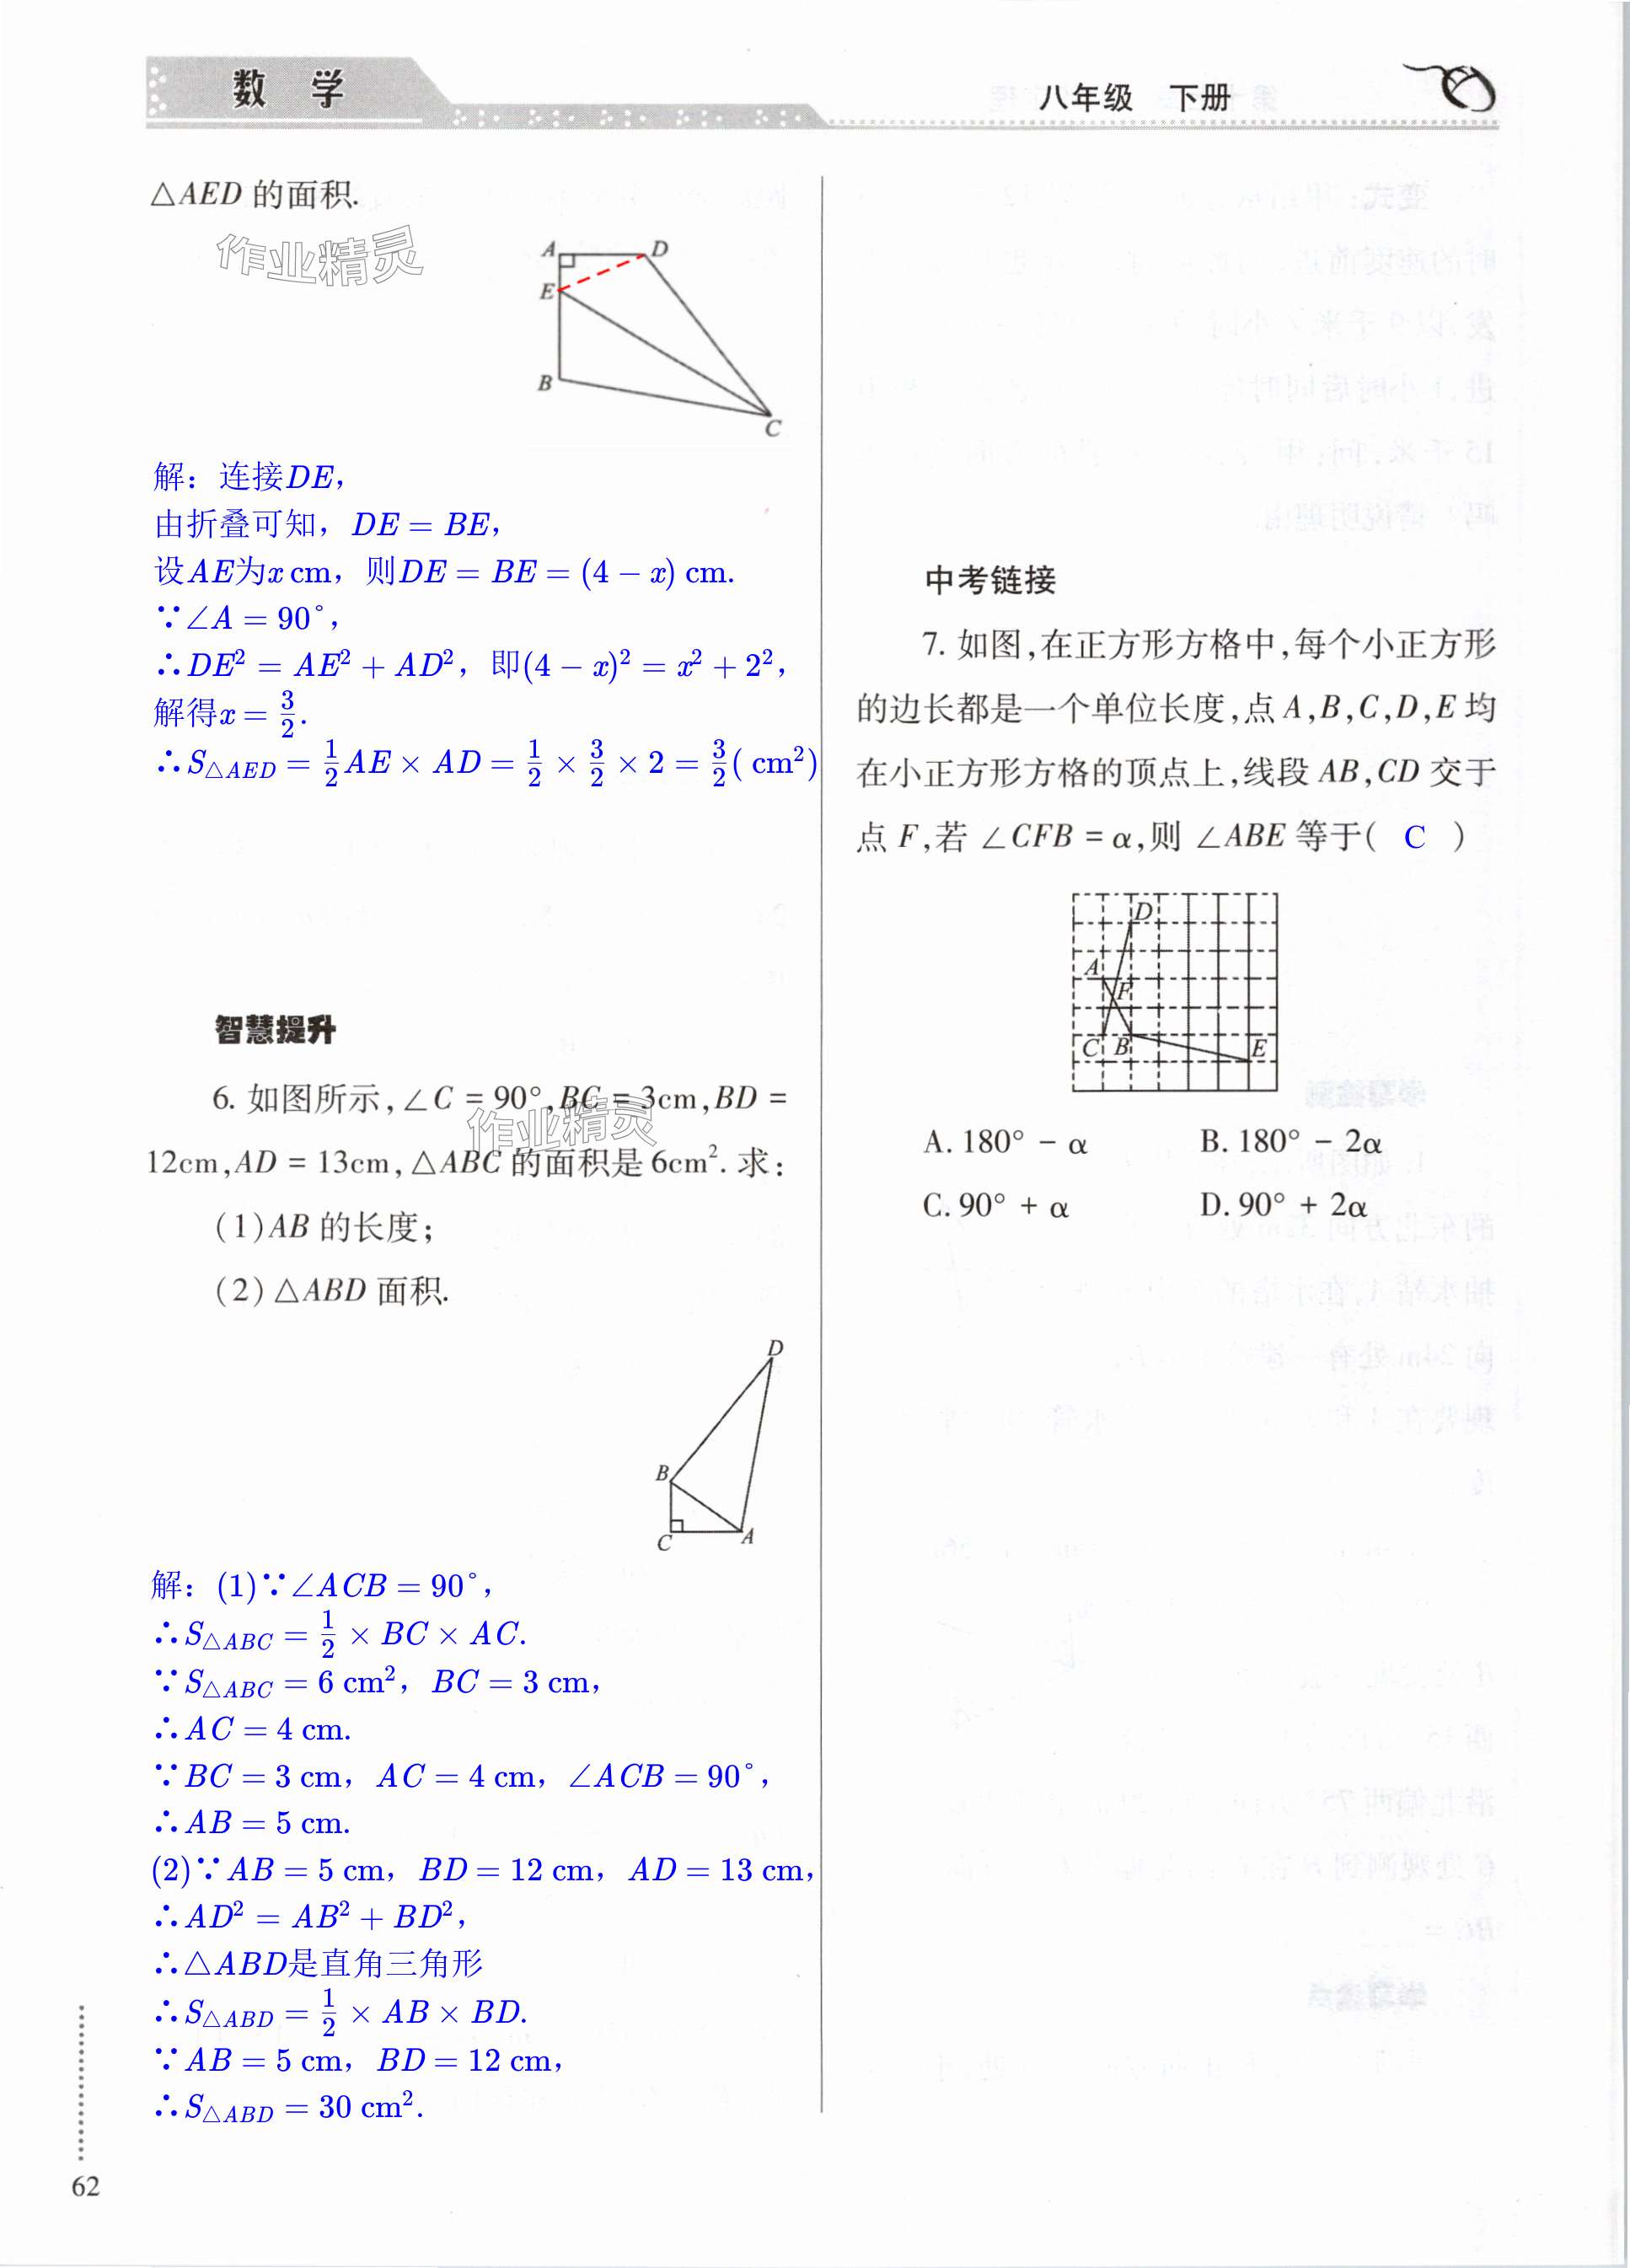 数 学
八年级 下册
△AED 的面积.
作业精灵
A D
E
B
C
解：连接DE，
由折叠可知，DE = BE，
设AE为x cm，则DE = BE = (4 − x) cm.
∵∠A = 90°，
∴DE² = AE² + AD²，即(4 − x)² = x² + 2²，
解得x = 3/2.
∴S△AED = 1/2 AE × AD = 1/2 × 3/2 × 2 = 3/2( cm²)
智慧提升
6. 如图所示,∠C = 90°,BC = 3cm,BD =
作业精灵
12cm,AD = 13cm,△ABC 的面积是 6cm². 求:
(1)AB 的长度;
(2)△ABD 面积.
D
B
C A
解：(1)∵∠ACB = 90°，
∴S△ABC = 1/2 × BC × AC.
∵S△ABC = 6 cm²，BC = 3 cm，
∴AC = 4 cm.
∵BC = 3 cm，AC = 4 cm，∠ACB = 90°，
∴AB = 5 cm.
(2)∵AB = 5 cm，BD = 12 cm，AD = 13 cm，
∴AD² = AB² + BD²，
∴△ABD是直角三角形
∴S△ABD = 1/2 × AB × BD.
∵AB = 5 cm，BD = 12 cm，
∴S△ABD = 30 cm².
62
中考链接
7. 如图,在正方形方格中,每个小正方形
的边长都是一个单位长度,点 A,B,C,D,E 均
在小正方形方格的顶点上,线段 AB,CD 交于
点 F,若 ∠CFB = α,则 ∠ABE 等于( C )
D
A
F
C B E
A. 180° − α B. 180° − 2α
C. 90° + α D. 90° + 2α